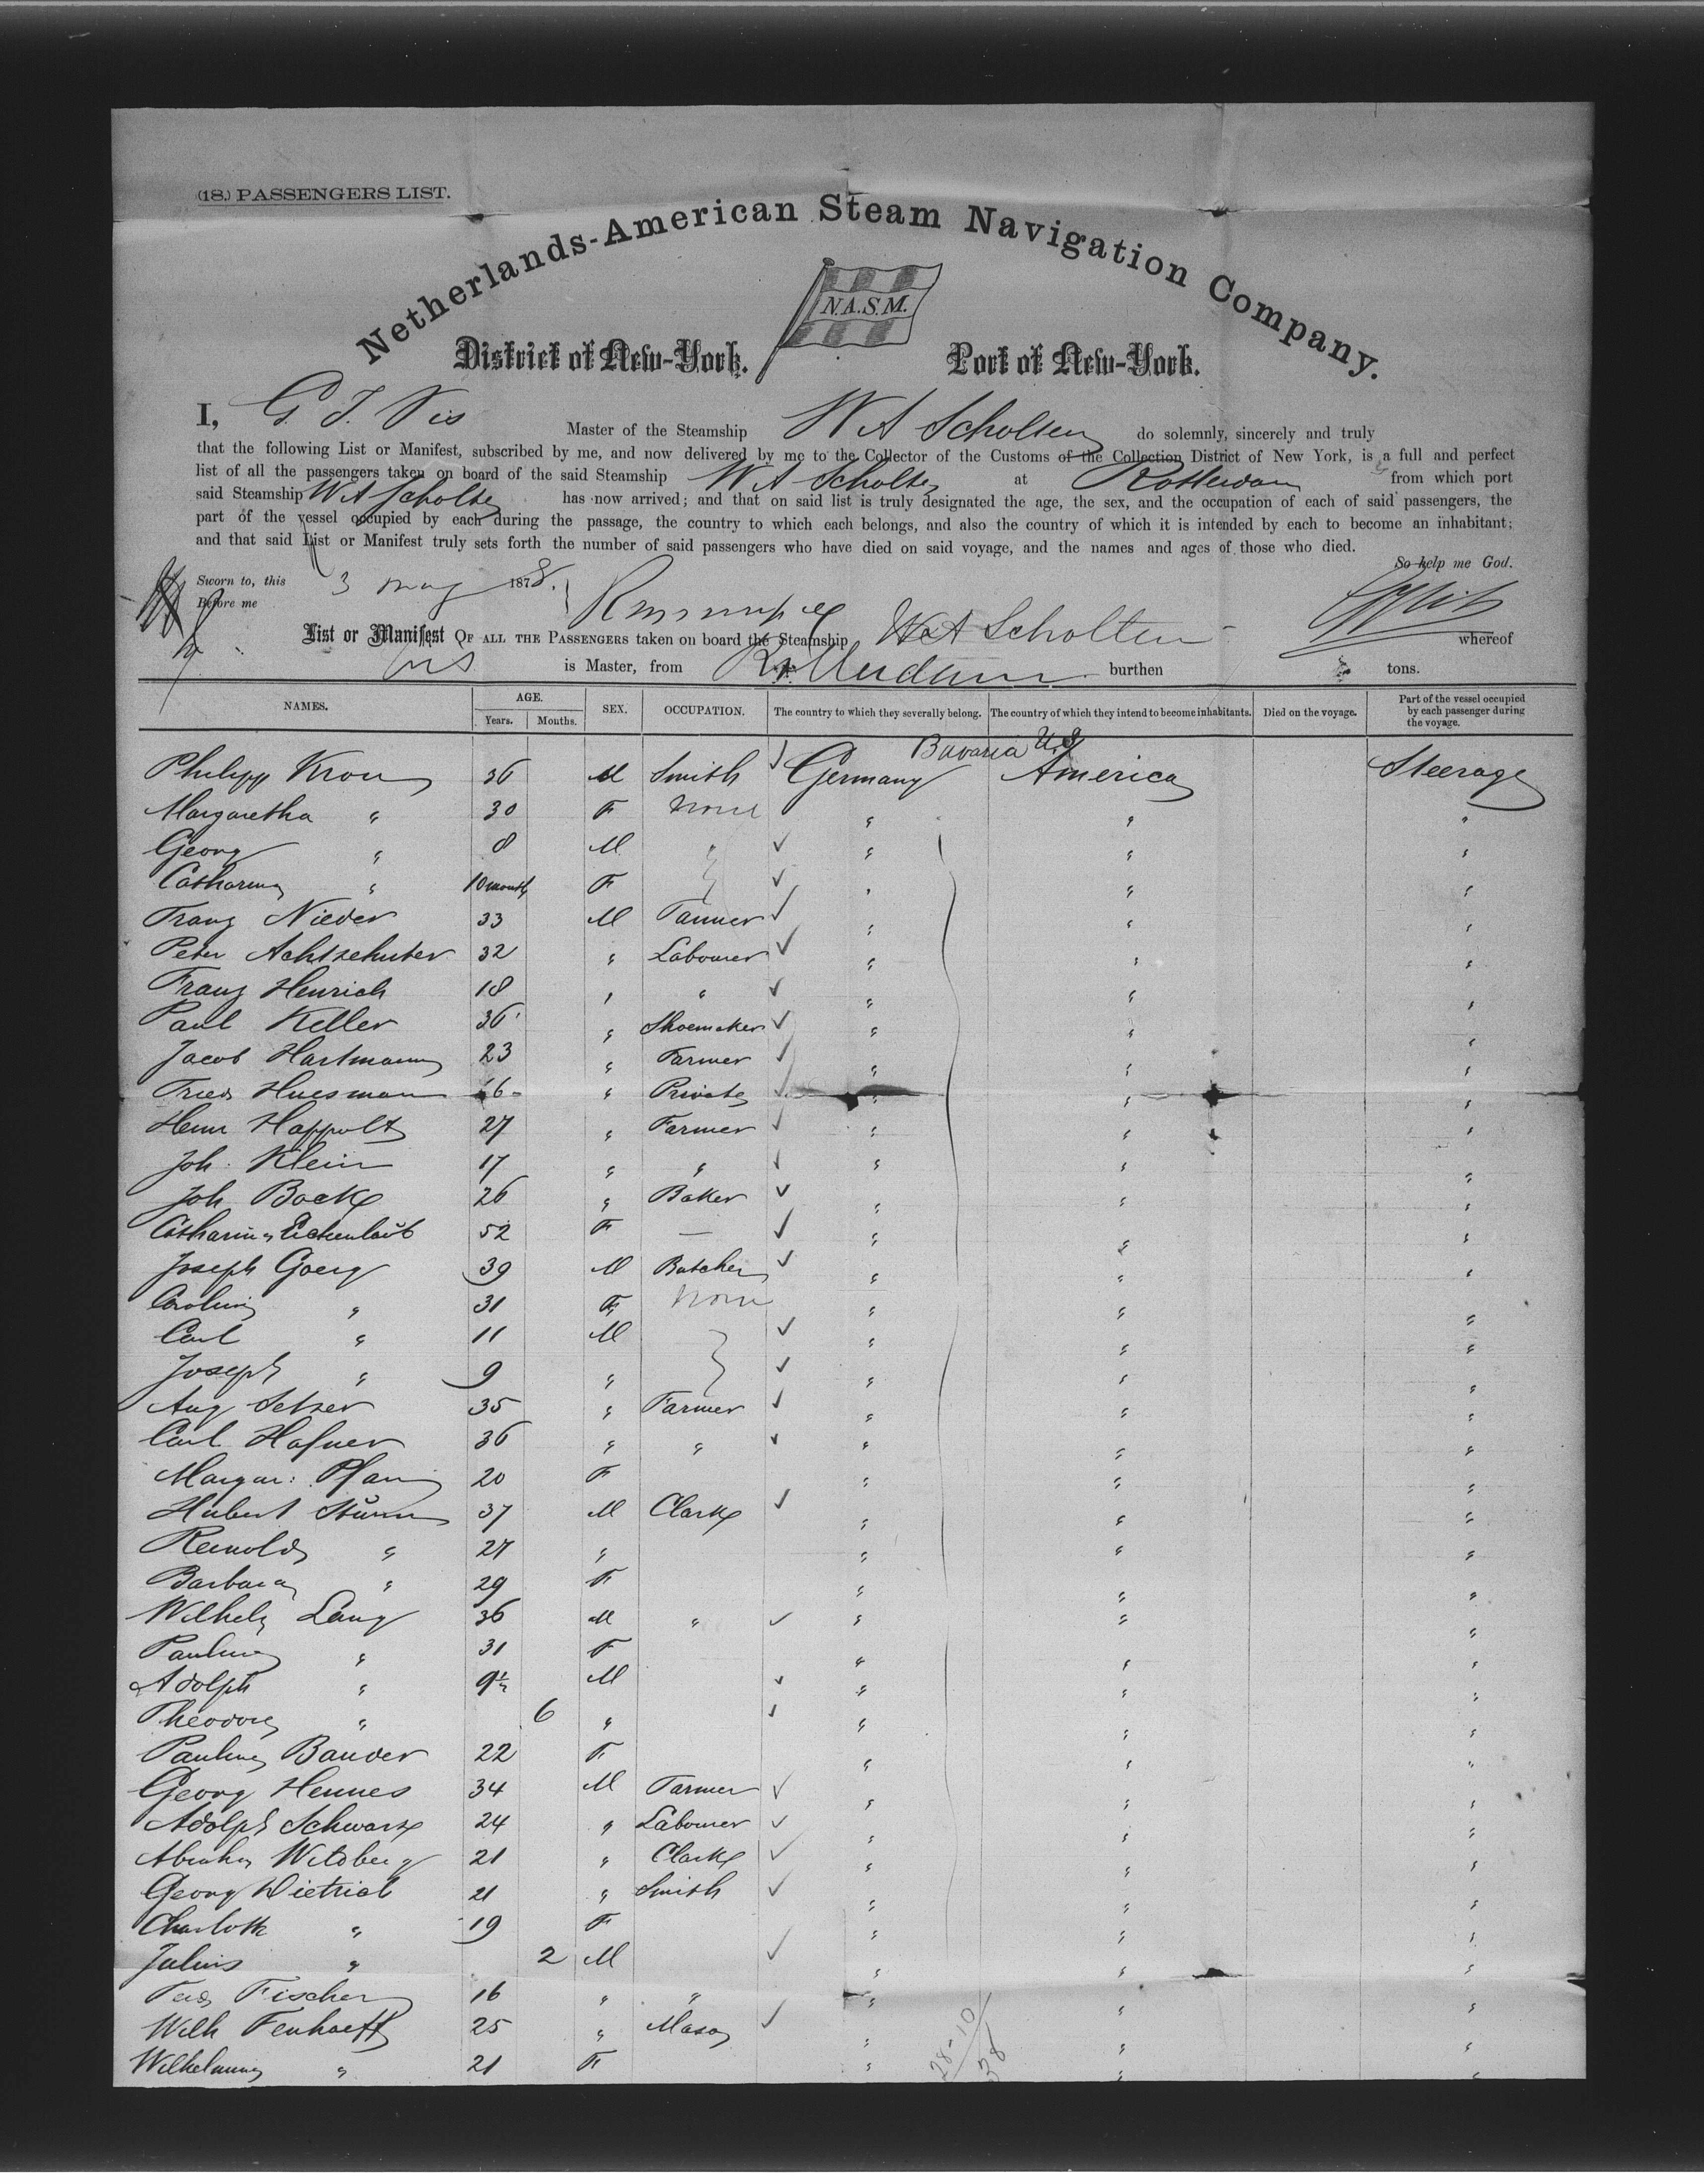 (18.) PASSENGERS LIST.
Netherlands-American Steam Navigation Company.
N.A.S.M.
District of New-York. Port of New-York.
I, G. J. Vis Master of the Steamship W A Scholten do solemnly, sincerely and truly
that the following List or Manifest, subscribed by me, and now delivered by me to the Collector of the Customs of the Collection District of New York, is a full and perfect
list of all the passengers taken on board of the said Steamship W A Scholten at Rotterdam from which port
said Steamship W A Scholten has now arrived; and that on said list is truly designated the age, the sex, and the occupation of each of said passengers, the
part of the vessel occupied by each during the passage, the country to which each belongs, and also the country of which it is intended by each to become an inhabitant;
and that said List or Manifest truly sets forth the number of said passengers who have died on said voyage, and the names and ages of those who died.
So help me God.
Sworn to, this 3 May 1878.
Before me
List or Manifest OF ALL THE PASSENGERS taken on board the Steamship W A Scholten whereof
Vis is Master, from Rotterdam burthen tons.
NAMES. AGE. Years. Months. SEX. OCCUPATION. The country to which they severally belong. The country of which they intend to become inhabitants. Died on the voyage. Part of the vessel occupied by each passenger during the voyage.
Bavaria U.S.
Philipp Kron 36 M Smith Germany America Steerage
Margaretha " 30 F None " " "
Georg " 8 M " " " "
Catharina " 10 months F " " "
Franz Nieder 33 M Tanner " " "
Peter Achtzehnter 32 " Labourer " " "
Franz Henrich 18 " " " " "
Paul Keller 36 " Shoemaker " " "
Jacob Hartmann 23 " Farmer " " "
Fried Huesmann 16 " Private " " "
Henr Happolt 27 " Farmer " " "
Joh. Klein 17 " " " " "
Joh Bock 26 " Baker " " "
Catharina Eichenlaub 52 F — " " "
Joseph Goerg 39 M Butcher " " "
Carolina " 31 F None " " "
Carl " 11 M " " "
Joseph " 9 " " " "
Aug Setzer 35 " Farmer " " "
Carl Hafner 36 " " " " "
Margar: 20 F " " "
Hubert Sturm 37 M Clark " " "
Reinold " 27 " " " "
Barbara " 29 F " " "
Wilhelm Lang 36 M " " " "
Paulina " 31 F " " "
Adolph " 9½ M " " "
Theodor " 6 " " " "
Paulina Bauder 22 F " " "
Georg Hennes 34 M Farmer " " "
Adolph Schwarz 24 " Labourer " " "
Abraham Witzberg 21 " Clark " " "
Georg Dietrich 21 " Smith " " "
Charlotte " 19 F " " "
Julius " 2 M " " "
Ferd Fischer 16 " " " " "
Wilh Fenhoeff 25 " Mason " " "
Wilhelmina " 21 F " " "
28-10
38